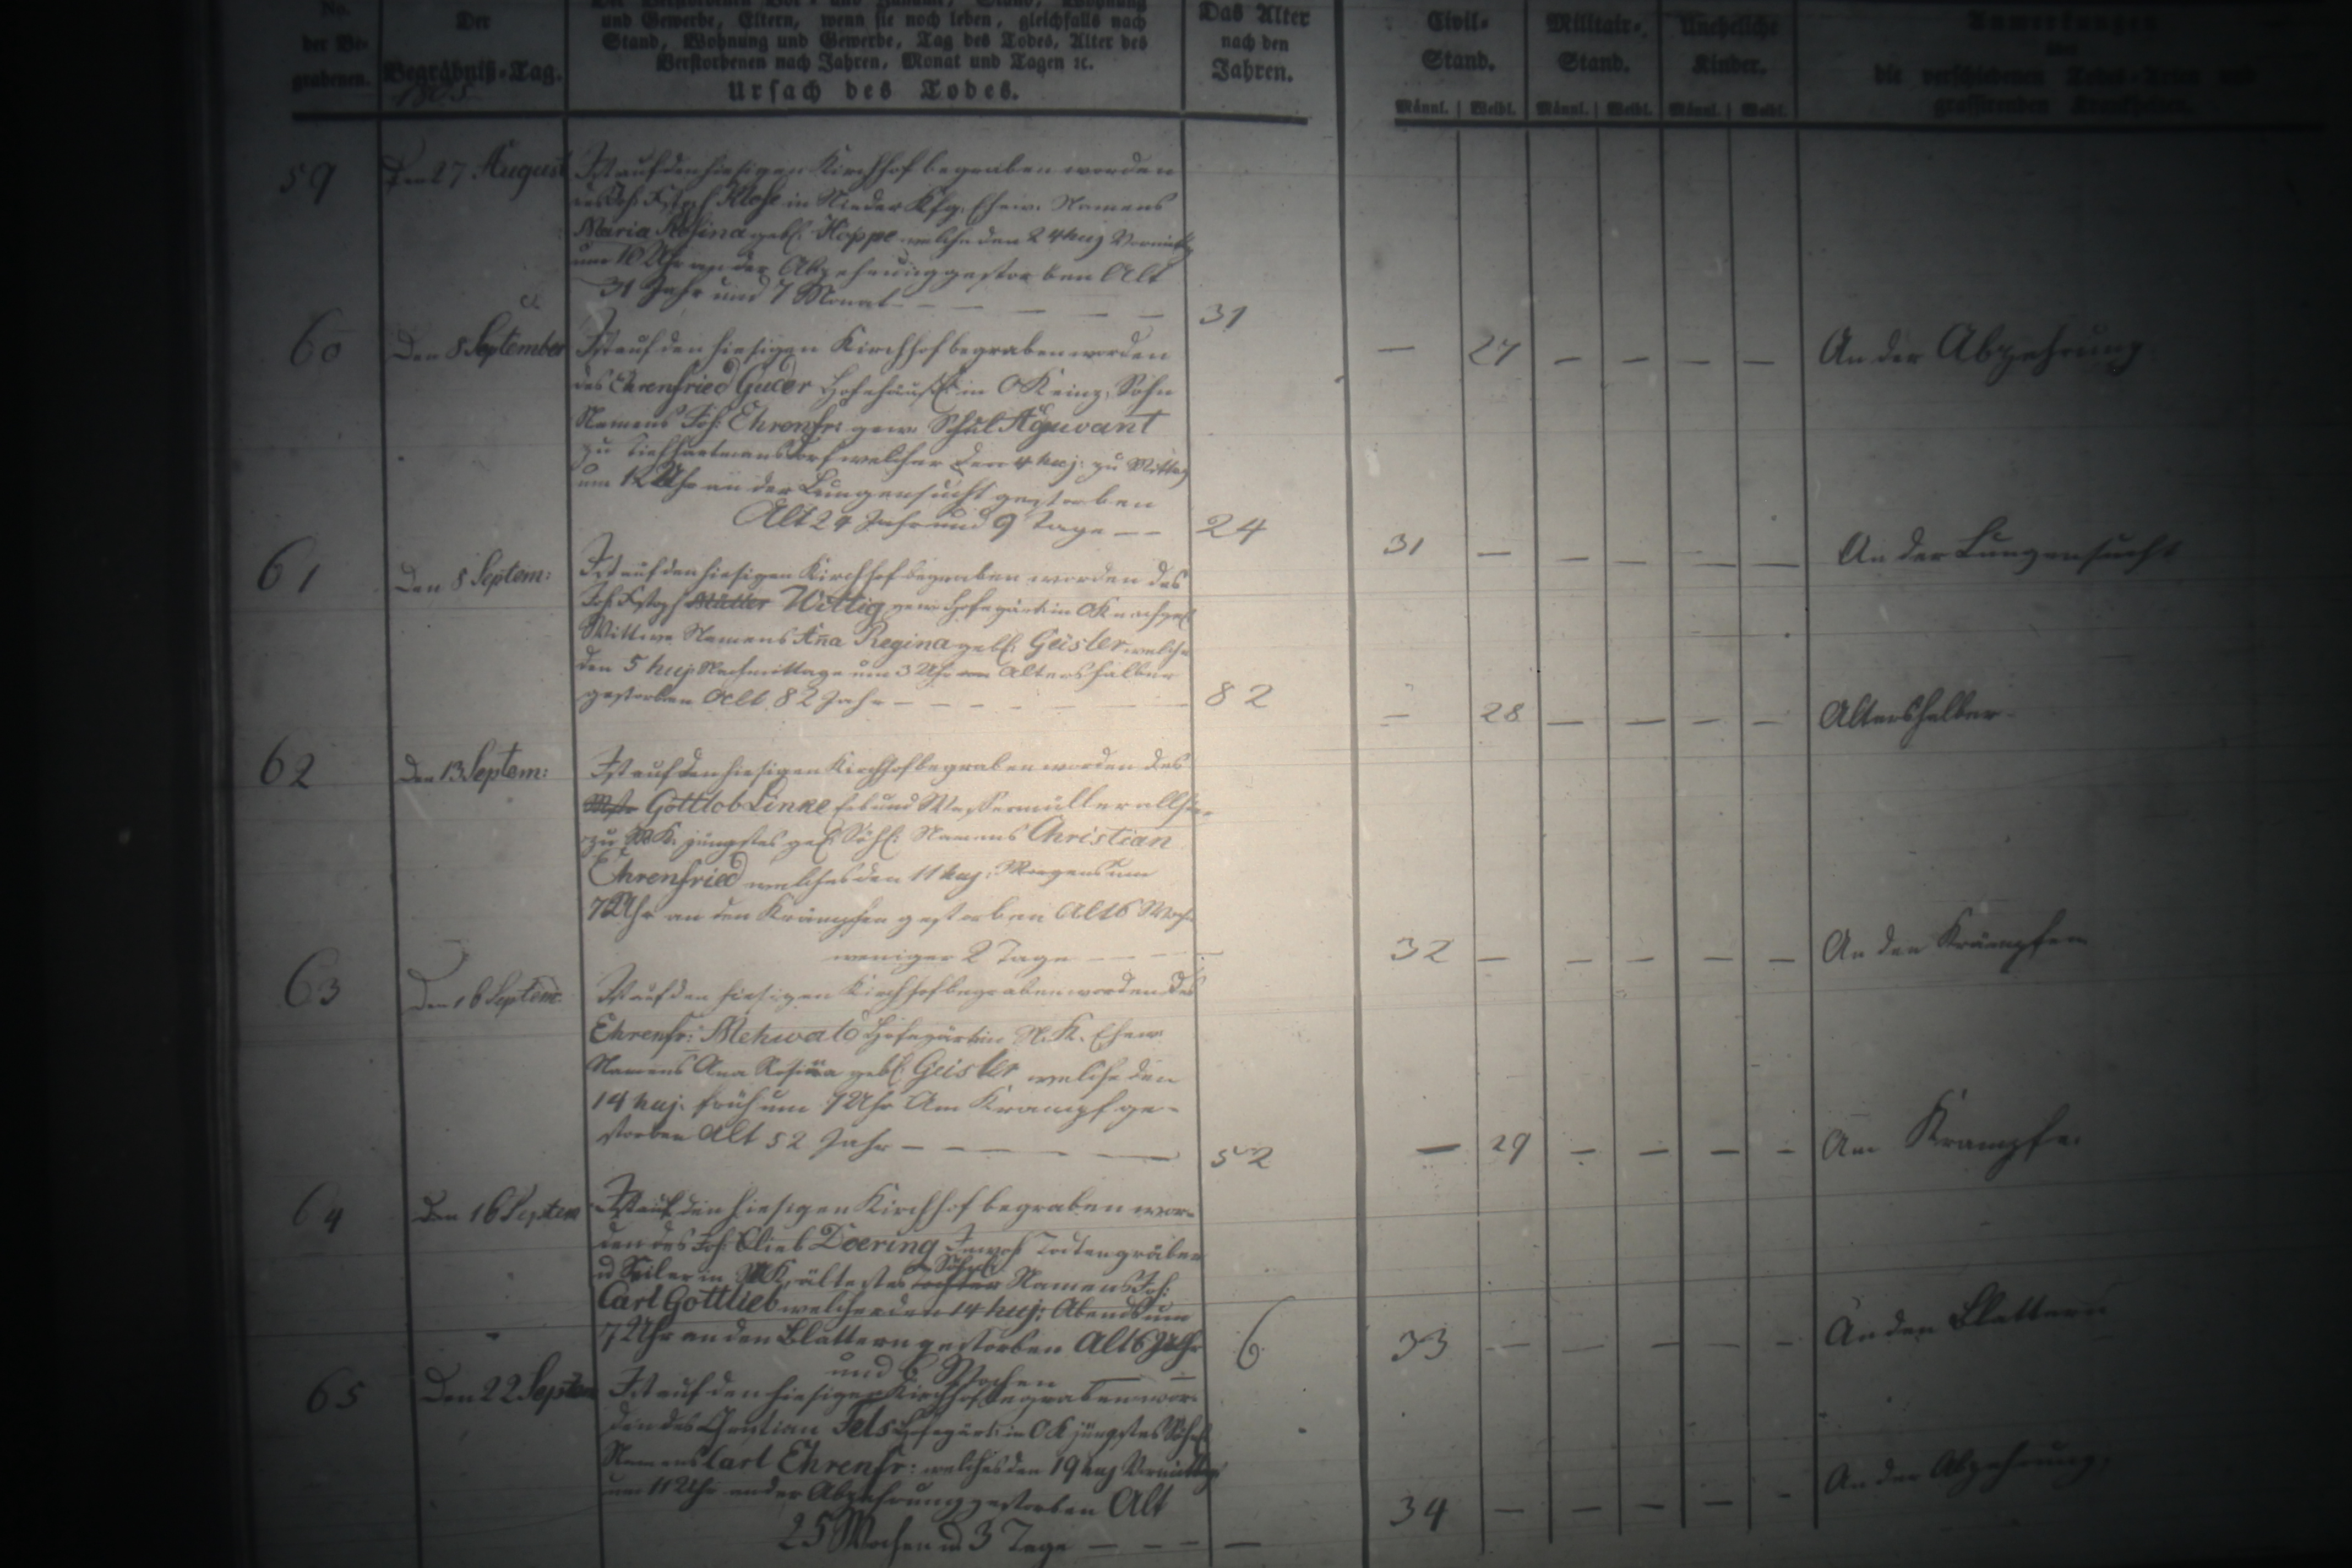 No. der Begrabenen.
Der Begräbniß-Tag.
1805
und Gewerbe, Eltern, wenn sie noch leben, gleichfalls nach
Stand, Wohnung und Gewerbe, Tag des Todes, Alter des
Verstorbenen nach Jahren, Monat und Tagen ꝛc.
Ursach des Todes.
Das Alter nach den Jahren.
Civil-Stand.
Militair-Stand.
Uneheliche Kinder.
Anmerkungen
über
die verschiedenen Todes-Arten und
grassirenden Krankheiten.
Männl. | Weibl. Männl. | Weibl. Männl. | Weibl.
59 Den 27 August Ist auf den hiesigen Kirchhof begraben worden
des Joh. Klose in Nieder Ehew. Namens
Maria Rosina geb. Hoppe welche den 24 huj Vormittag
um 10 Uhr an der Abzehrung gestorben Alt
31 Jahr und 7 Monat — — — — 31
— 27 — — — — An der Abzehrung
60 Den 8 September Ist auf den hiesigen Kirchhof begraben worden
des Ehrenfried Guder in O K einz. Sohn
Namens Joh. Ehrenfr: gew. Schul
zu Tiefhartmansdorf welcher den 4 huj: zu Mittag
um 12 Uhr an der Lungensucht gestorben
Alt 24 Jahr und 9 Tage — — 24
31 — — — — — An der Lungensucht
61 Den 8 Septem: Ist auf den hiesigen Kirchhof begraben worden des
Joh. Müller Wittig gew. Hofegärt. in OK nachgel.
Wittwe Namens Aña Regina geb. Geisler welche
den 5 huj. Nachmittage um 3 Uhr Altershalber
gestorben Alt 82 Jahr — — — — 82
— 28 — — — — Altershalber
62 Den 13 Septem: Ist auf den hiesigen Kirchhof begraben worden des
Gottlob Linke Wassermüller allhier
zu K. jüngstes Söhl. Namens Christian
Ehrenfried welches den 11 huj: Morgens um
7 Uhr an den Krämpfen gestorben Alt 6 Woch.
weniger 2 Tage — — —
32 — — — — — An den Krämpfen
63 Den 16 Septem: Ist auf den hiesigen Kirchhof begraben worden des
Ehrenfr: Mehwald Hofegärt. in N. K. Ehew.
Namens Ana Rosina geb. Geisler welche den
14 huj. früh um 7 Uhr Am Krampf ge-
storben Alt 52 Jahr — — — — 52
— 29 — — — — Am Krampfe.
64 Den 16 Septem Ist auf den hiesigen Kirchhof begraben wor-
den des Joh. Doering Todtengräber
u Seiler in K. ältestes Söhnl. Namens Joh:
Carl Gottlieb welcher den 14 huj: Abends um
7 Uhr an den Blattern gestorben Alt 6 Jahr 6
und 6 Wochen — —
33 — — — — — An den Blattern
65 Den 22 Septem Ist auf den hiesigen Kirchhof begraben wor-
den des Christian Fels Hofegärt. in OK jüngstes Söhnl.
Namens Carl Ehrenfr: welches den 19 huj Vormittag
um 11 Uhr an der Abzehrung gestorben Alt
25 Wochen u 3 Tage — — — —
34 — — — — — An der Abzehrung.